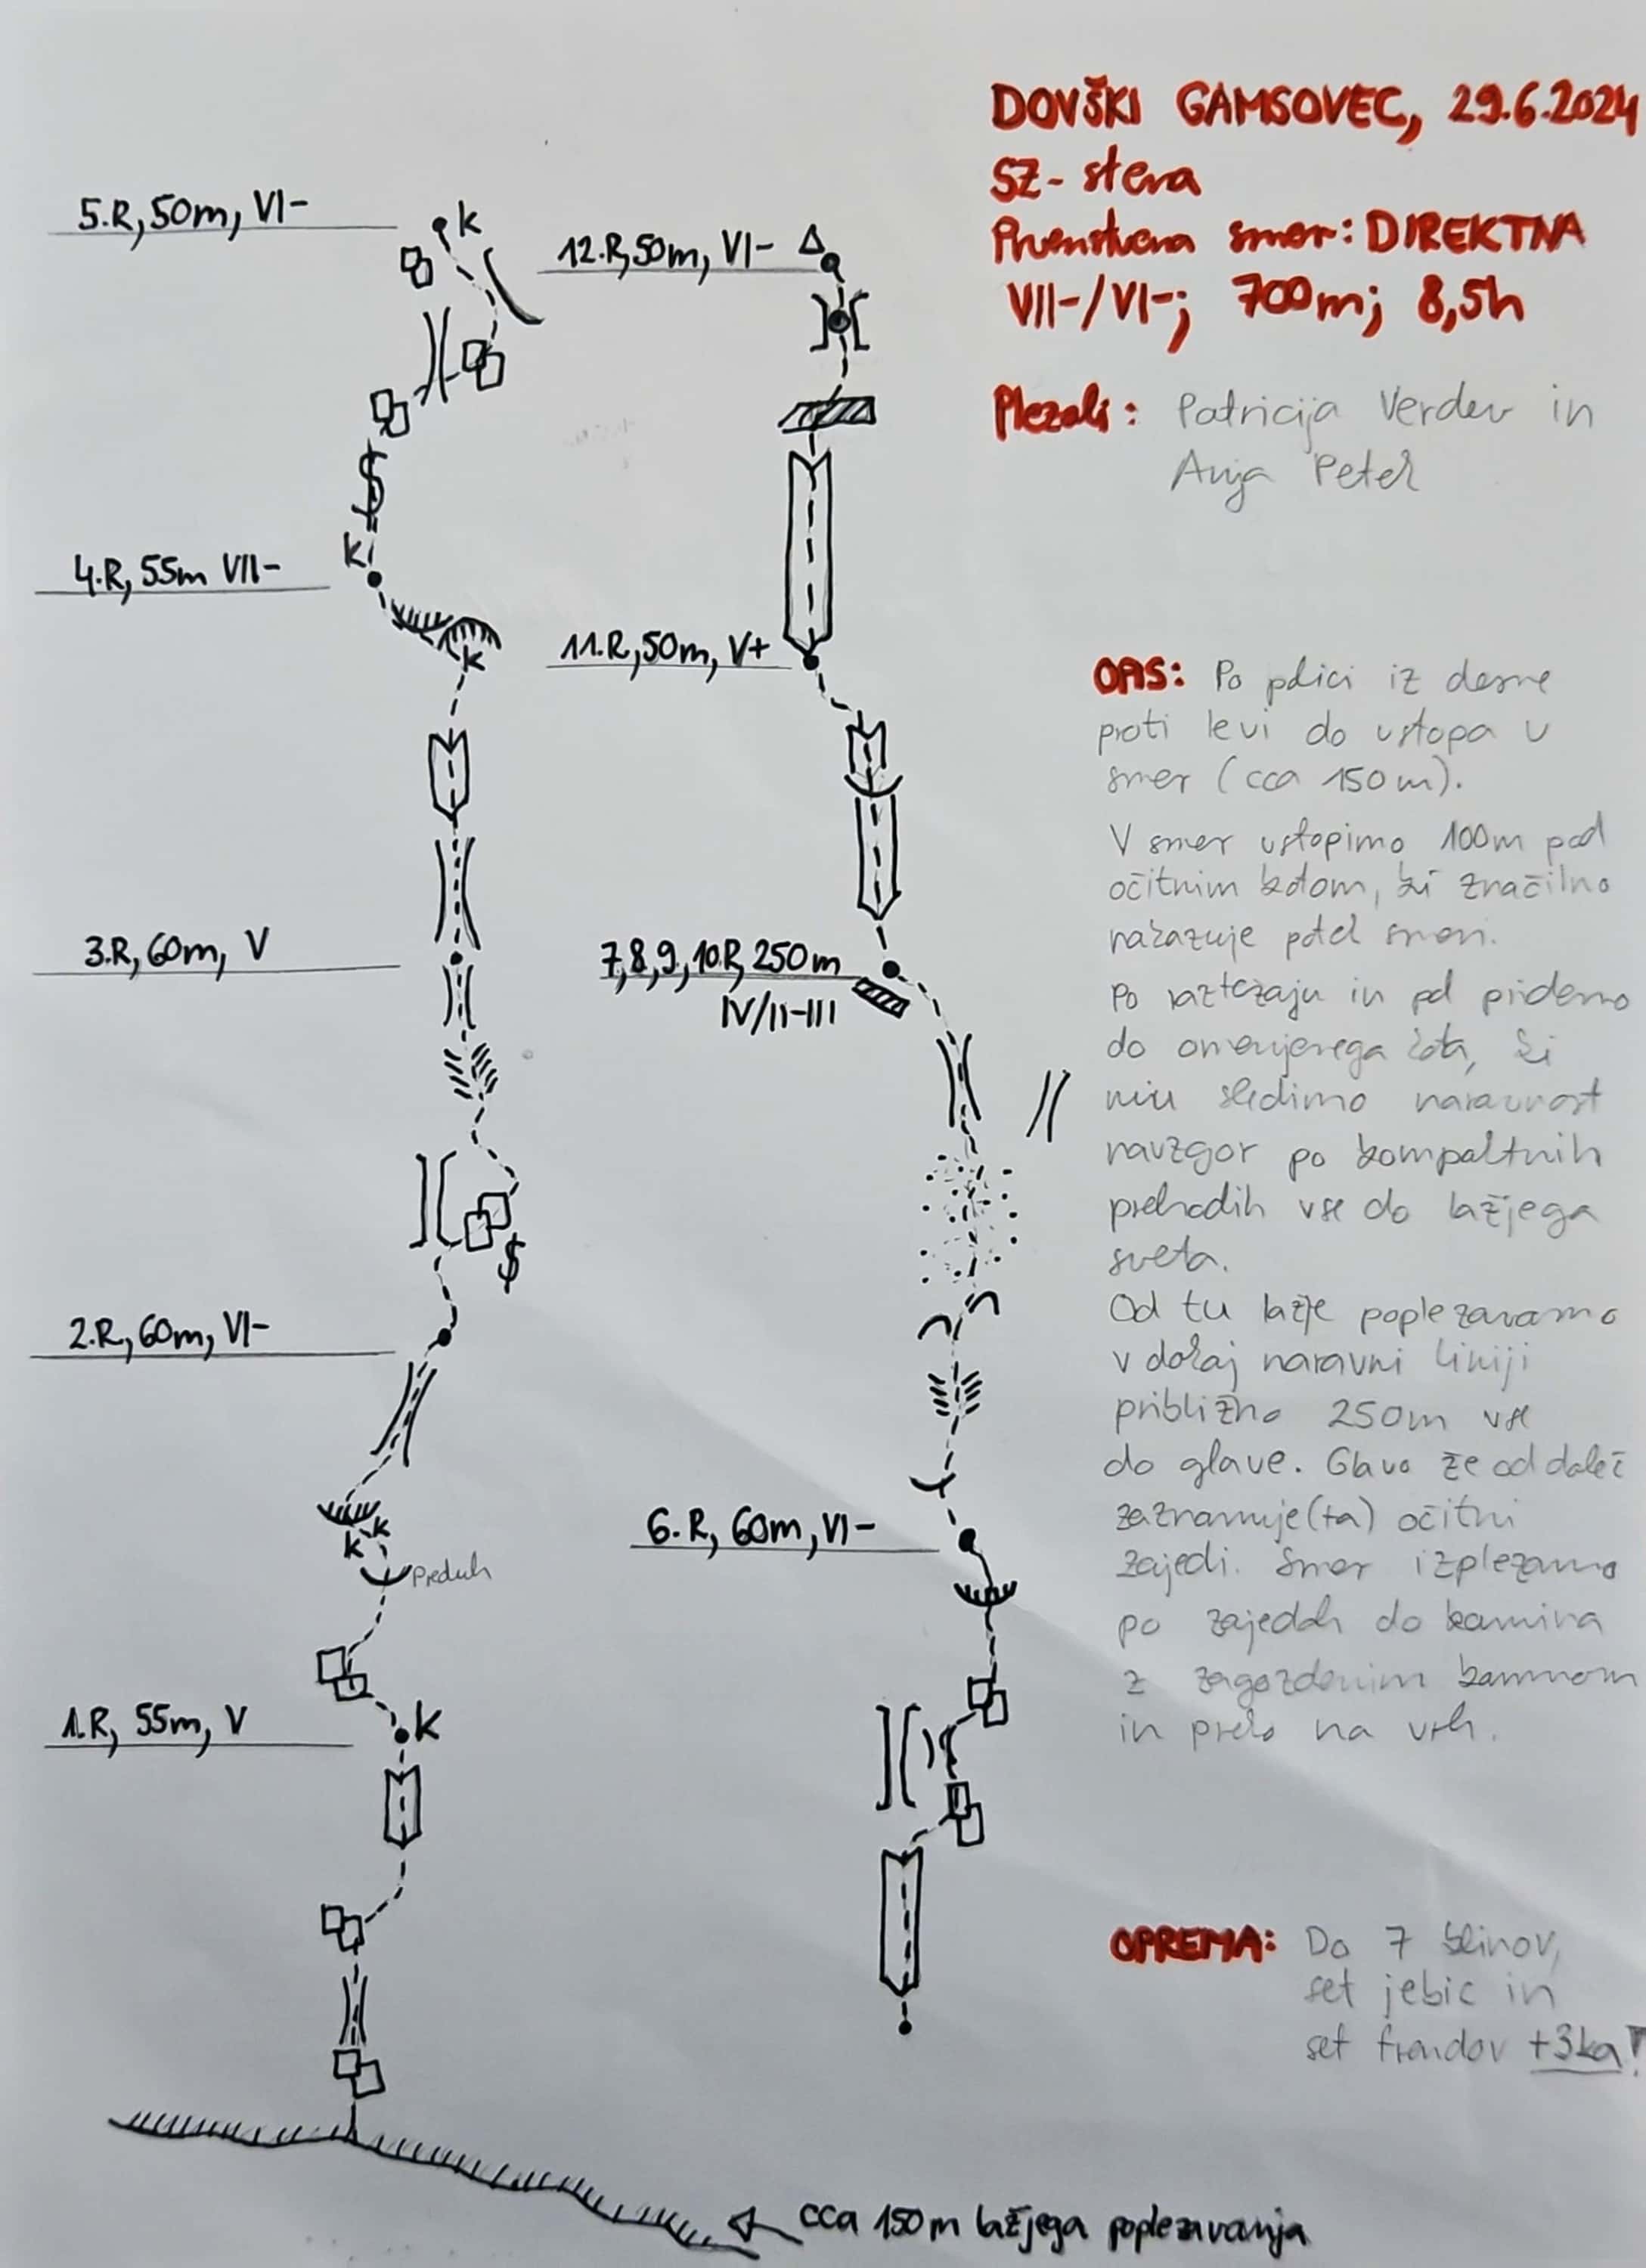 DOVŠKI GAMSOVEC, 29.6.2024
SZ-stena
Prvenstvena smer: DIREKTNA
VII-/VI-; 700m; 8,5h
Plezali: Patricija Verdev in
Anja Petek
5.R, 50m, VI-
k
4.R, 55m VII-
k
k
3.R, 60m, V
2.R, 60m, VI-
k k
Preduh
1.R, 55m, V
k
12.R, 50m, VI-
11.R, 50m, V+
7,8,9,10.R, 250m
IV/II-III
6.R, 60m, VI-
cca 150m lažjega poplezavanja
OPIS: Po polici iz desne
proti levi do vstopa v
smer (cca 150m).
V smer vstopimo 100m pod
očitnim kotom, ki značilno
nakazuje potek smeri.
Po raztežaju in pol pridemo
do omenjenega kota, ki
mu sledimo naravnost
navzgor po kompaktnih
prehodih vse do lažjega
sveta.
Od tu lažje poplezavamo
v dokaj naravni liniji
približno 250m vse
do glave. Glavo že od daleč
zaznamuje(ta) očitni
zajedi. Smer izplezamo
po zajedah do kamina
z zagozdenim kamnom
in preko na vrh.
OPREMA: Do 7 klinov,
set jebic in
set frendov +3ka!